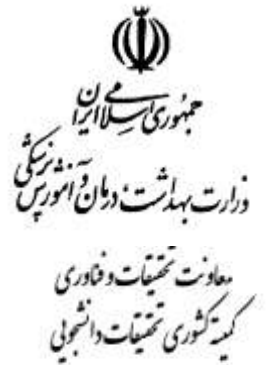 جمهوری اسلامی ایران
وزارت بهداشت، درمان و آموزش پزشکی
معاونت تحقیقات و فناوری
کمیته کشوری تحقیقات دانشجویی